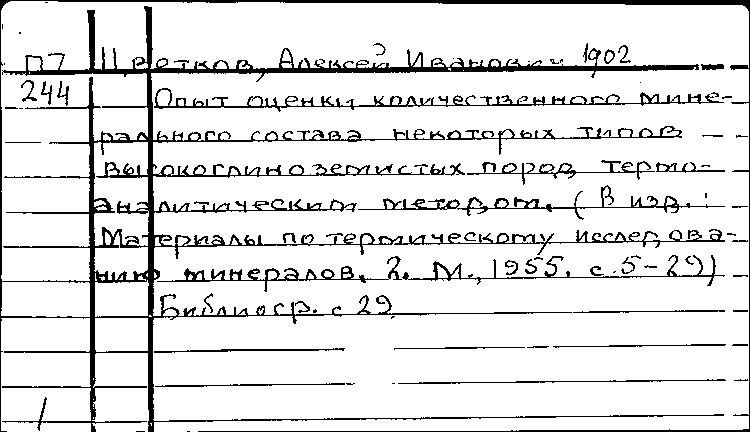 П7 Цветков, Алексей Иванович 1902
244 Опыт оценки количественного мине-
рального состава некоторых типов
высокоглиноземистых пород термо-
аналитическим методом. (В изд.:
Материалы по термическому исследова-
нию минералов. 2. М., 1955. с. 5-29)
Библиогр. с 29